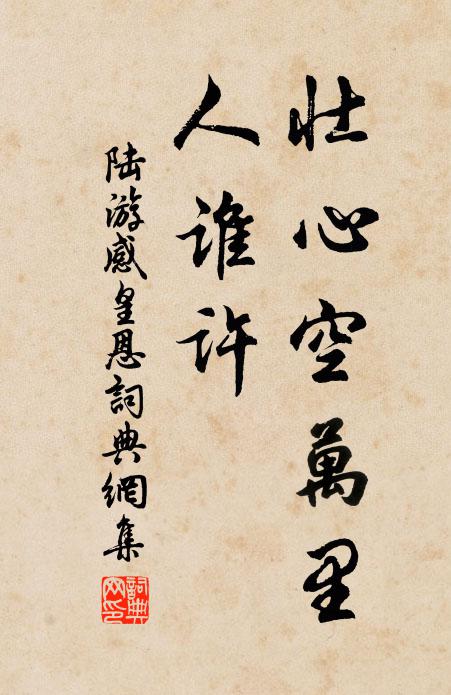 壮心空萬里
人谁許
陆游感皇恩詞典網集
詞典网印